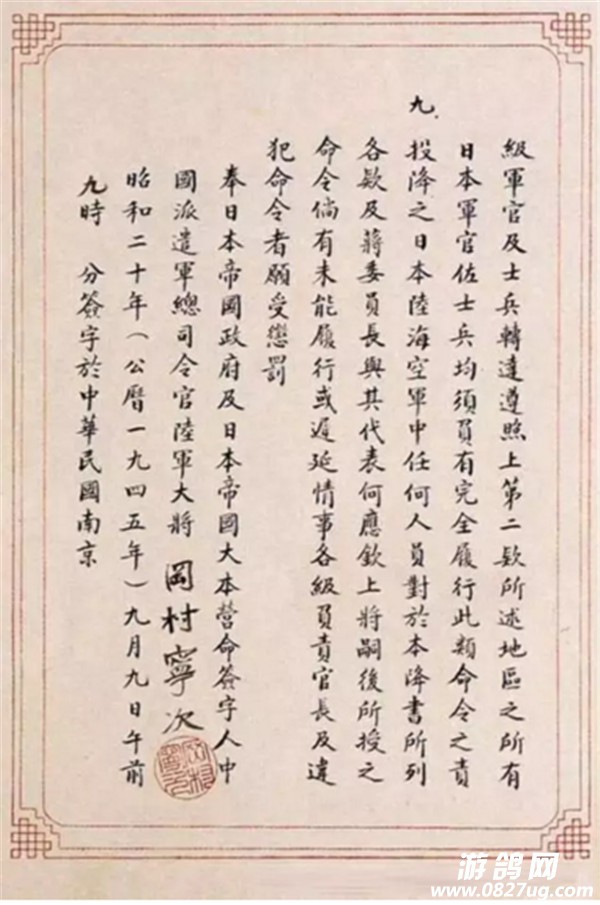 級軍官及士兵轉達遵照上第二欵所述地區之所有
日本軍官佐士兵均須負有完全履行此類命令之責
九、投降之日本陸海空軍中任何人員對於本降書所列
各欵及蔣委員長與其代表何應欽上將嗣後所授之
命令倘有未能履行或遲延情事各級負責官長及違
犯命令者願受懲罰
奉日本帝國政府及日本帝國大本營命簽字人中
國派遣軍總司令官陸軍大將 岡村寧次
昭和二十年(公曆一九四五年)九月九日午前
九時 分簽字於中華民國南京
游鸽网
www.0827ug.com